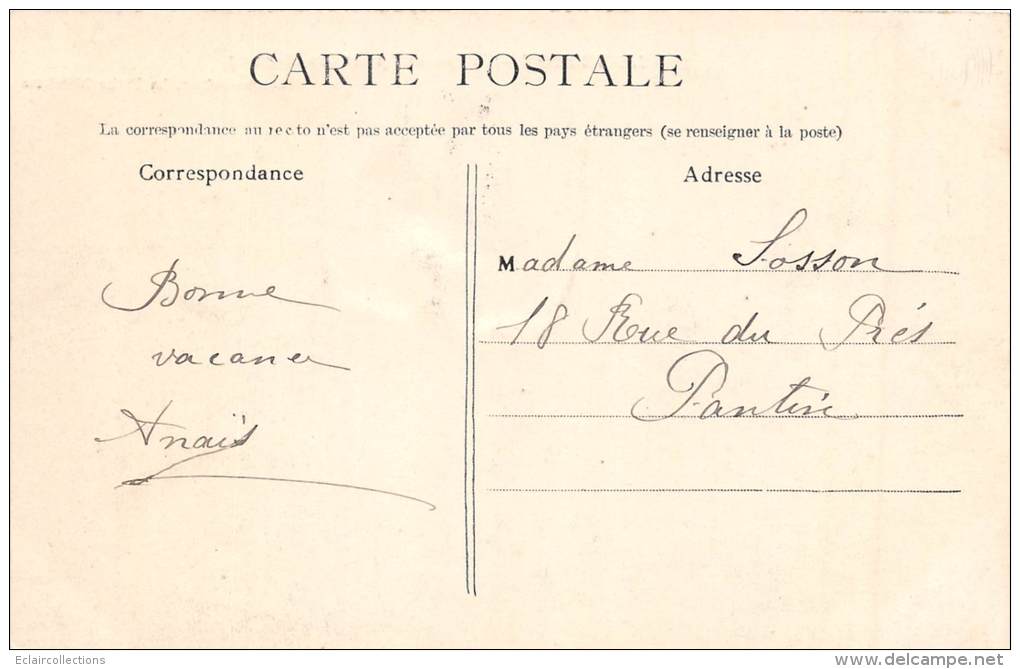 CARTE POSTALE
La correspondance au recto n'est pas acceptée par tous les pays étrangers (se renseigner à la poste)
Correspondance
Adresse
Bonne
vacance
Anaïs
Madame Sosson
18 Rue du Prés
Pantin
Eclaircollections
www.delcampe.net